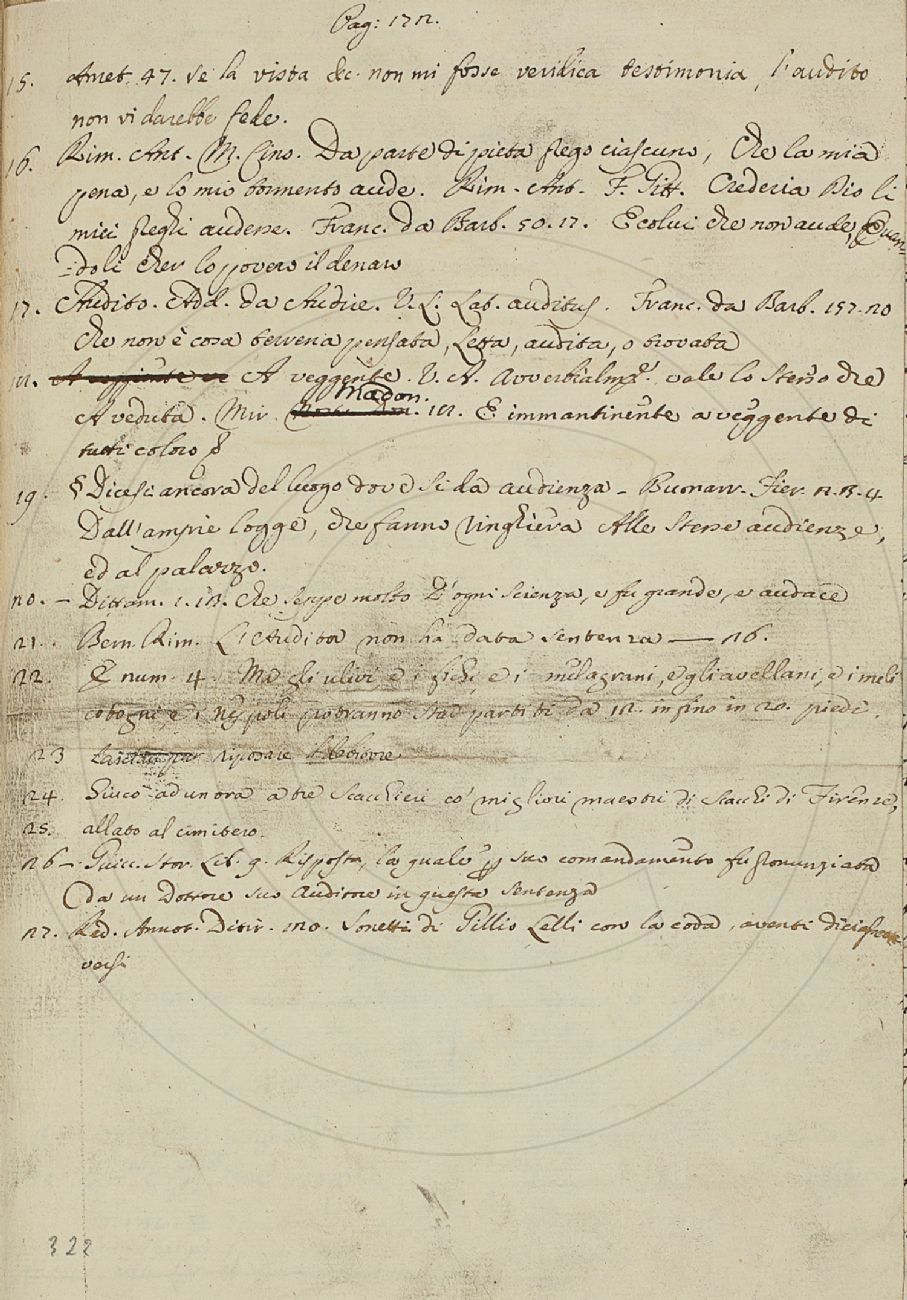 Pag: 172.
15. Amet. 47. Se la vista &c. non mi fosse veridica testimonia, l'audito
non vi darebbe fede.
16. Rim. Ant. M. Cino. Da parte di pietà prego ciascuno, Che la mia
pena, e lo mio tormento aude. Rim. Ant. F. Gitt. Crederia Dio li
miei preghi audesse. Franc. da Barb. 50. 17. E colui che non aude, Quan-
-do li cher lo povero il denaro
17. Audito. Add. da Audire. V. L. Lat. auditus. Franc. da Barb. 157. 20
Che non è cosa terrena pensata, Letta, audita, o trovata
18. A veggente. V. A. Avverbialmte. vale lo stesso che
A veduta. Mir. Madon. 18. E immantinente a veggente di
tutti coloro
19. § Dicesi ancora del luogo dove si dà audienza - Buonarr. Fier. 2. 3. 4
Dall'ampie logge, che fanno ringhiera Alle stesse audienze,
ed al palazzo.
20. - Dittam. 1. 18. Che seppe molto D'ogni scienza, e fu grande, e audace
21. Bern. Rim. L'Auditor non ha data sentenza — 26.
22. E num. 4. Ma gli ulivi, e i fichi, e i melagrani, e gli avellani, e i meli
cotogni, e i nespoli potranno star partiti da 18. infino in 20. piedi.
23 riposare
24. Giucò ad un'ora a tre scacchieri co' migliori maestri di scacchi di Firenze,
25. allato al cimitero.
26 - Guicc. Stor. Lib. 9. Risposta, la quale per suo comandamento fu pronunziata
da un Dottore suo Auditore in questa sentenza
27. Red. Annot. Ditir. 120. Sonetti di Gillio Lelli con la coda, aventi
versi
322